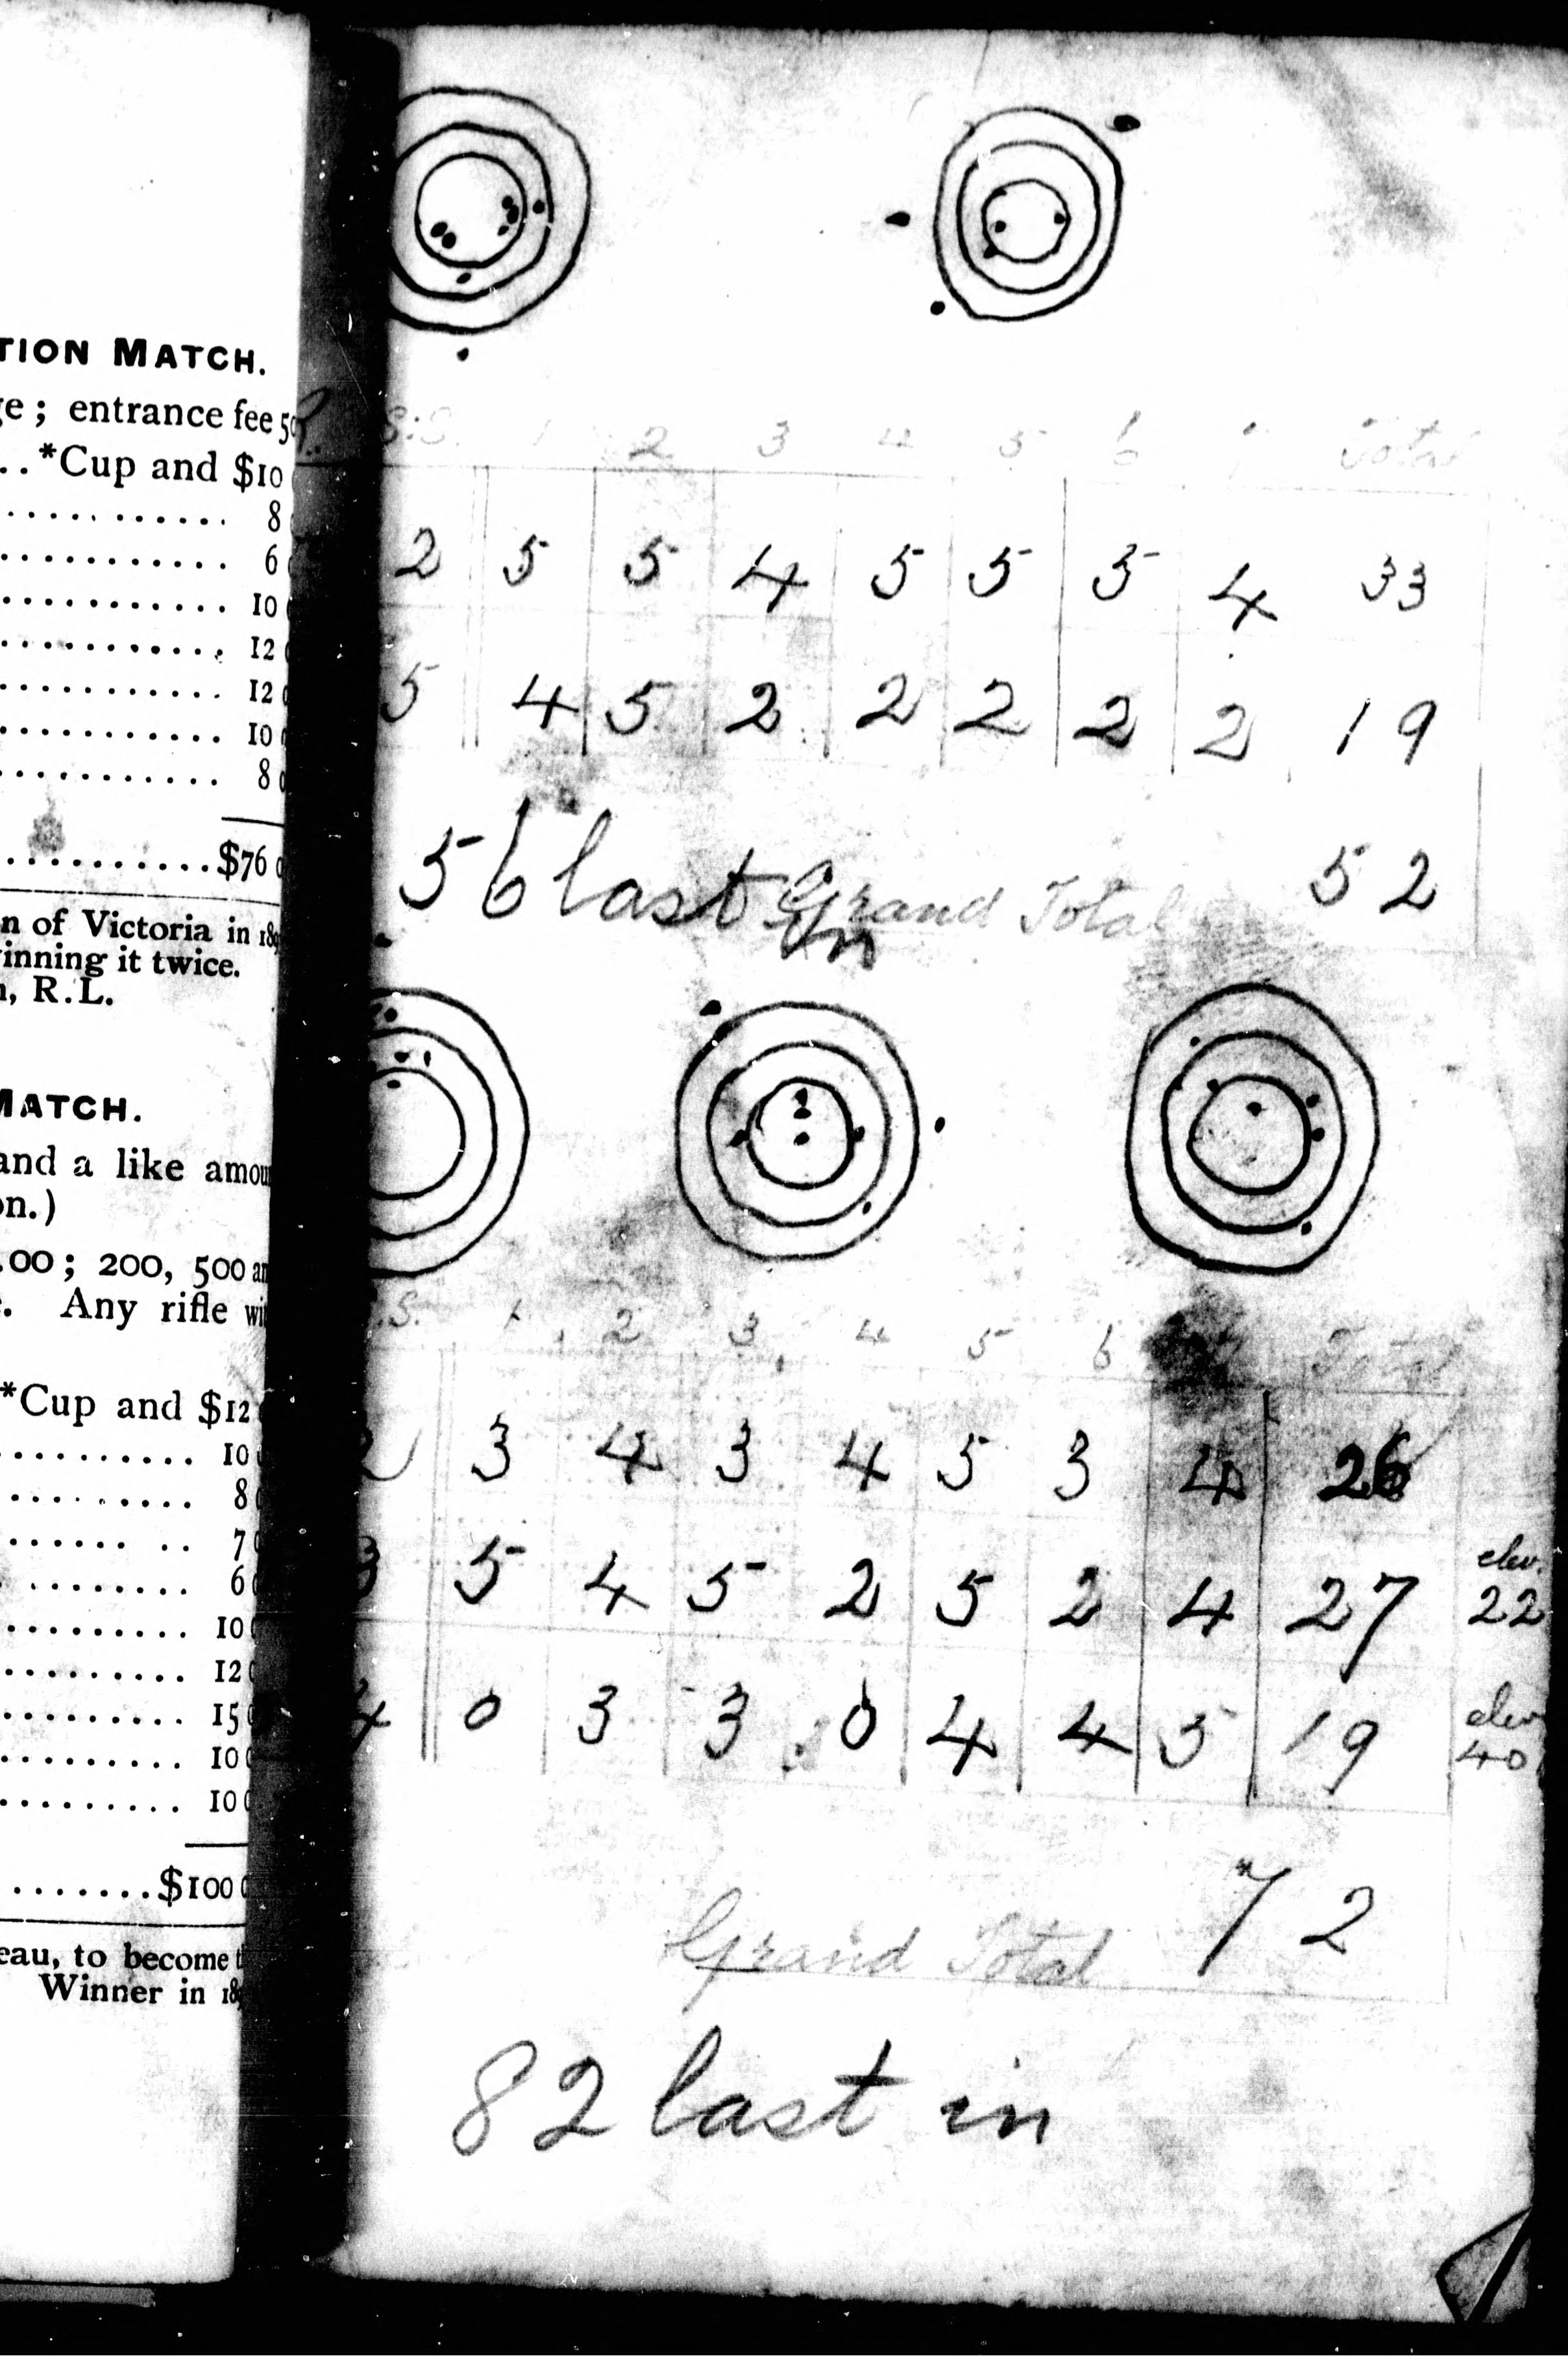 TION MATCH.
ge; entrance fee 50
..*Cup and $10
............ 8
........... 6
........... 10
........... 12
........... 12
........... 10
........... 8
..........$76
n of Victoria in 189
inning it twice.
, R.L.
MATCH.
and a like amou
on.)
.00; 200, 500 an
. Any rifle wi
*Cup and $12
.......... 10
......... 8
...... .. 7
........ 6
......... 10
......... 12
......... 15
......... 10
......... 10
.......$100
eau, to become t
Winner in 189
R. S.S. 1 2 3 4 5 6 7 Total
2 5 5 4 5 5 5 4 33
5 4 5 2 2 2 2 2 19
56 last Grand Total 52
in
S.S. 1 2 3 4 5 6 Total
2 3 4 3 4 5 3 4 26
3 5 4 5 2 5 2 4 27 elev. 22
4 0 3 3 0 4 4 5 19 elev 40
Grand Total 72
82 last in